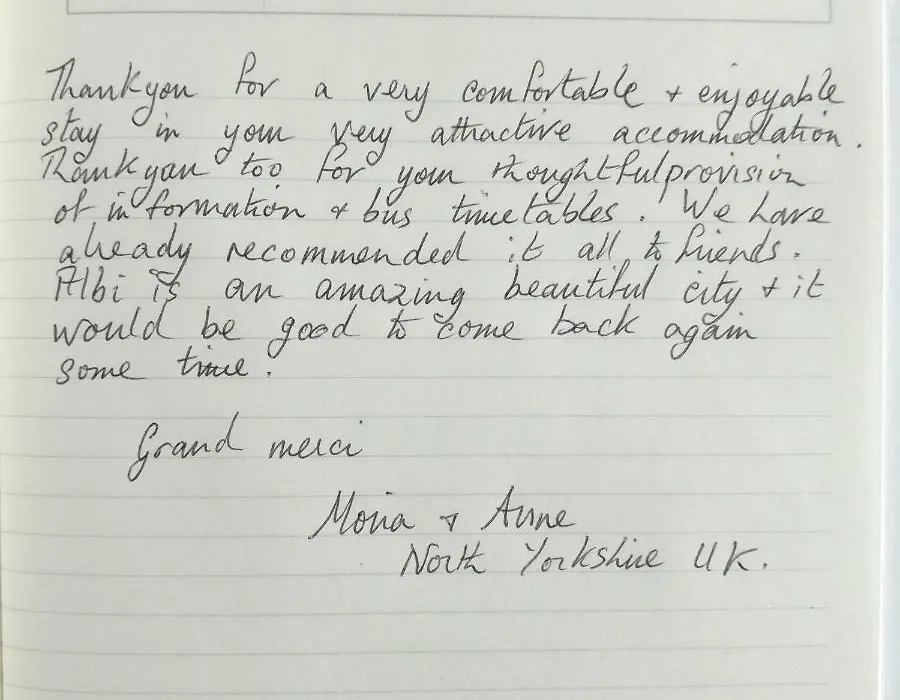 Thankyou for a very comfortable + enjoyable
stay in your very attractive accommodation.
Thankyou too for your thoughtful provision
of information + bus timetables. We have
already recommended it all to friends.
Albi is an amazing beautiful city + it
would be good to come back again
some time.
Grand merci
+ Anne
North Yorkshire UK.